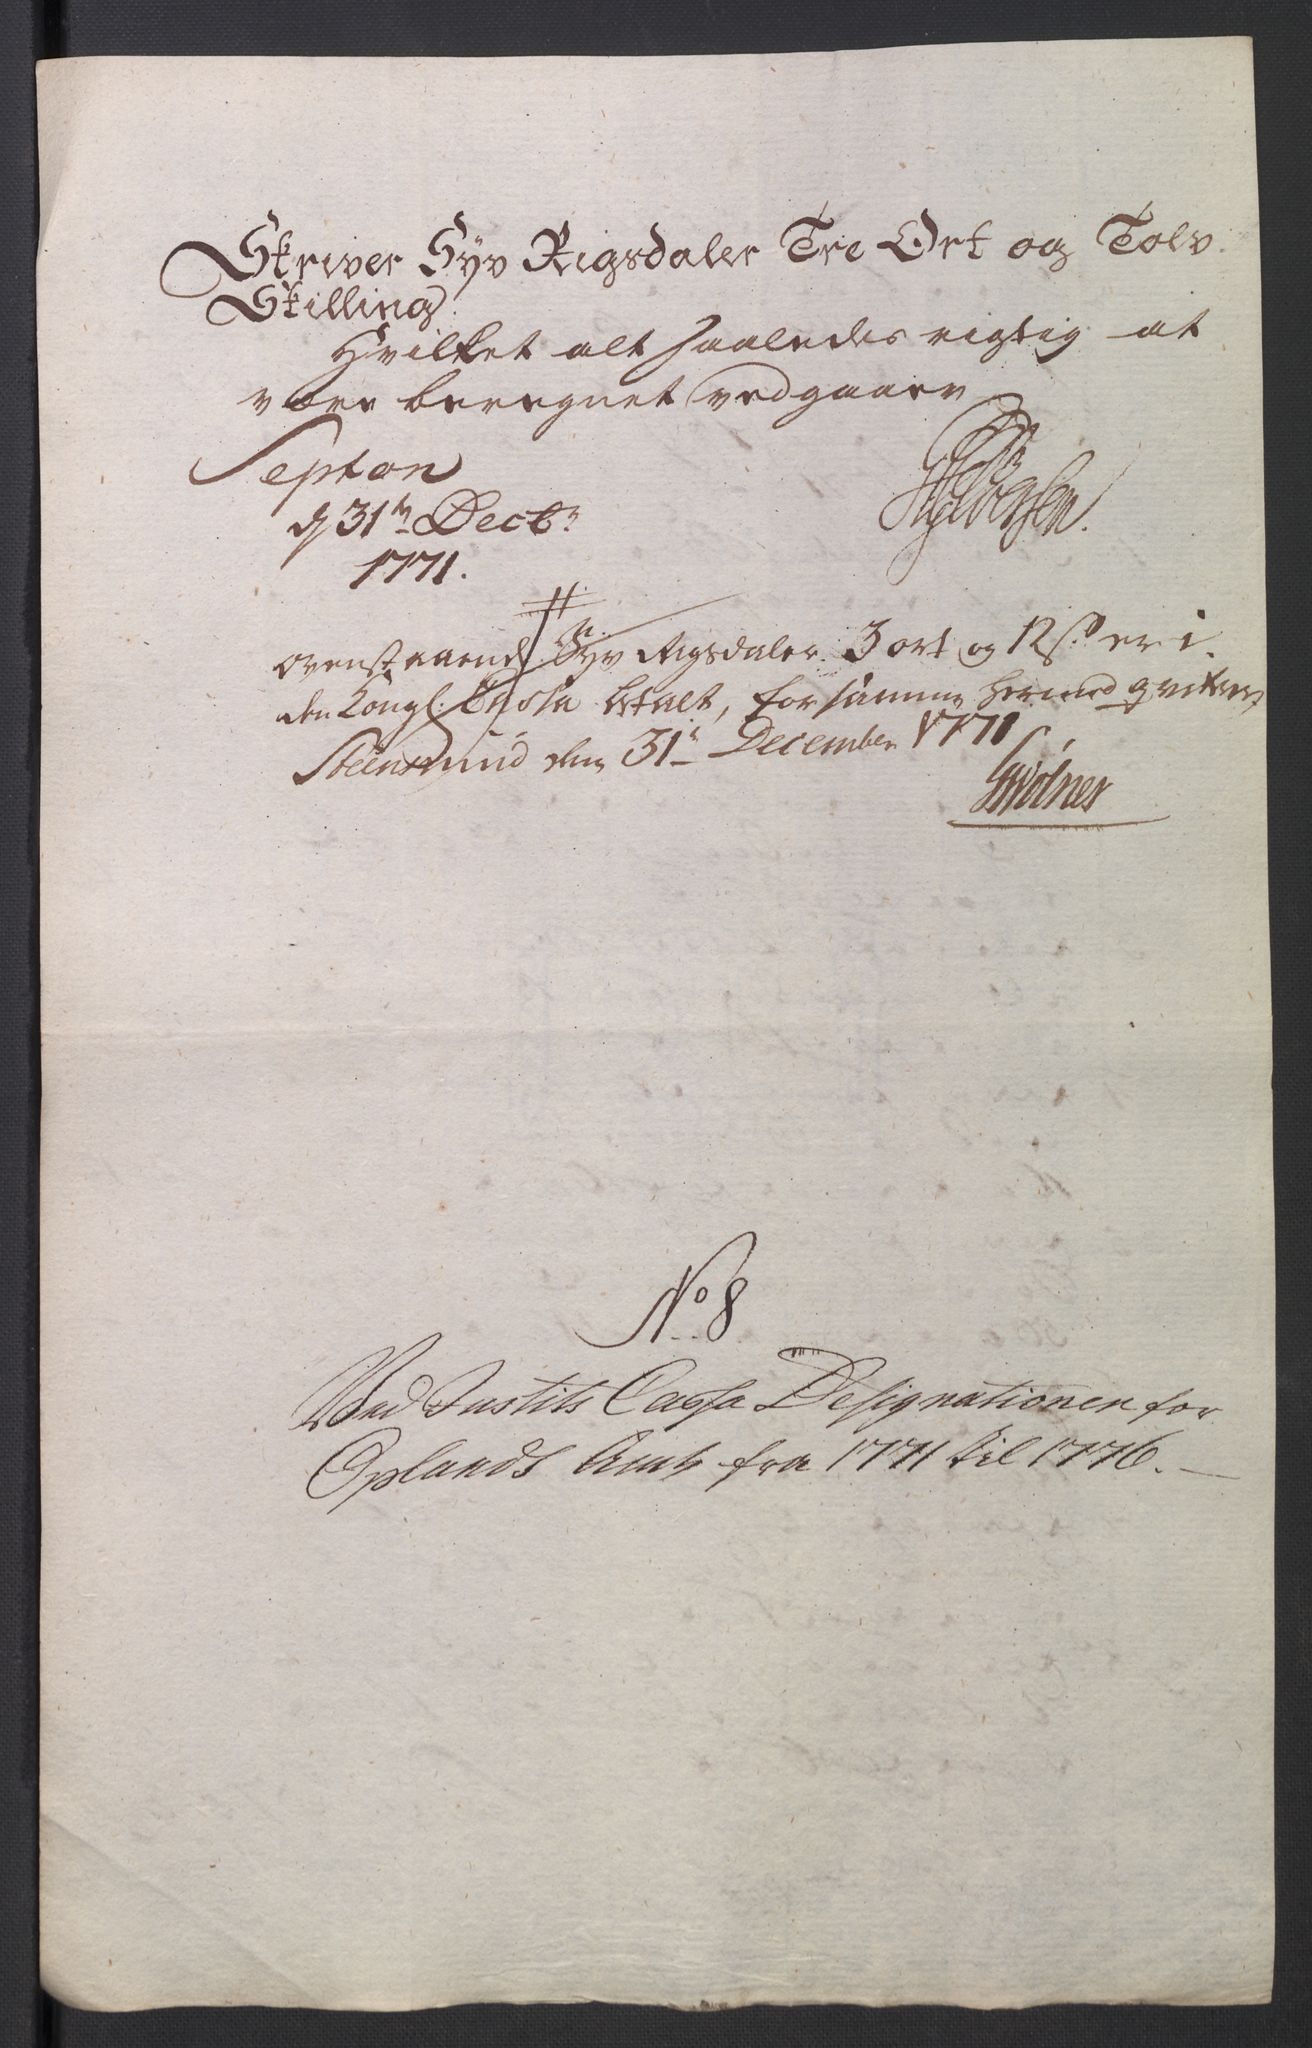 Skriver Syv Rigsdaler Tre Ort og Tolv
Skilling.
Hvilket alt saaledes rigtig at
være beregnet vedgaaer
d 31te Decbr
1771.
ovenstaaende Syv Rigsdaler 3 ort og 12 s er i
den Kongl. Cassa betalt, for samme hermed qviteres
den 31te December 1771
No 8
Ved Justits Cassa Designationen for
Oplands Amt fra 1771 til 1776.